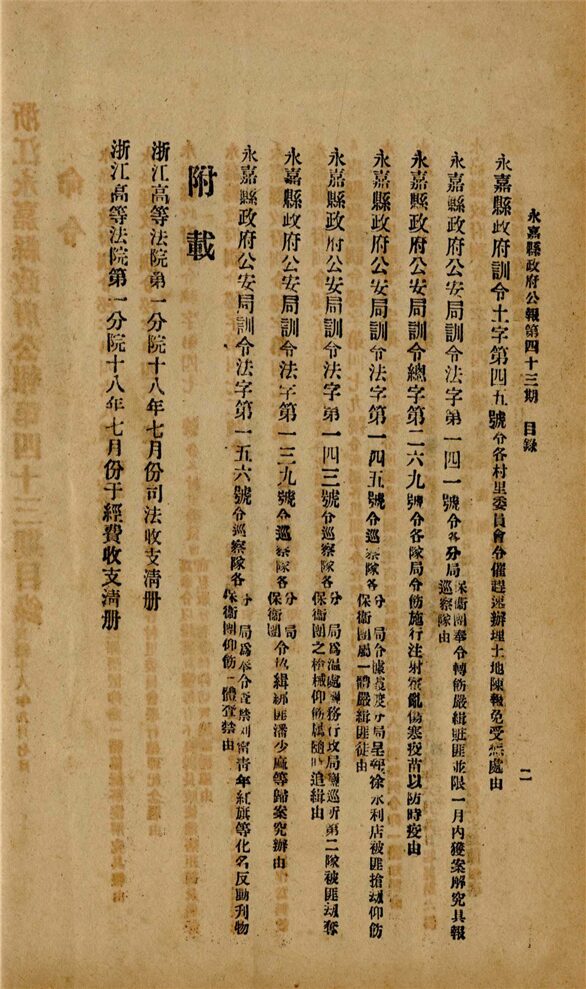 永嘉縣政府公報第四十三期　目錄
二
永嘉縣政府訓令土字第四五號令各村里委員會令催趕速辦理土地陳報免受懲處由
永嘉縣政府公安局訓令法字第一四一號令各分局巡察隊由保衞團奉令轉飭嚴緝賍匪並限一月內獲案解究具報
永嘉縣政府公安局訓令總字第二六九號令各隊局令飭施行注射霍亂傷寒疫苗以防時疫由
永嘉縣政府公安局訓令法字第一四五號令巡察隊各分局保衞團令據分局呈報徐永利店被匪搶刼仰飭屬一體嚴緝匪徒由
永嘉縣政府公安局訓令法字第一四三號令巡察隊各分局保衞團爲溫處務行政局鹽巡所第二隊被匪刼奪之槍械仰飭屬隨時追緝由
永嘉縣政府公安局訓令法字第一三九號令巡察隊各分局保衞團令協緝綁匪潘少麻等歸案究辦由
永嘉縣政府公安局訓令法字第一五六號令巡察隊各分局保衞團爲奉令查禁列寧青年紅旗等化名反動刊物仰飭一體查禁由
附載
浙江高等法院第一分院十八年七月份司法收支清册
浙江高等法院第一分院十八年七月份于經費收支清册